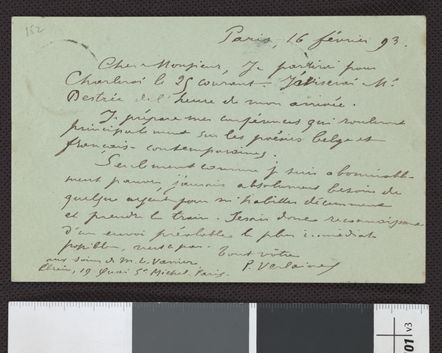 152
Paris, 16 février 93.
Cher Monsieur, Je partirai pour
Charleroi le 25 courant. J'aviserai Mr
Destrée de l'heure de mon arrivée.
Je prépare mes conférences qui rouleront
principalement sur les poésies belge et
française contemporaines.
Seulement comme je suis abominable-
ment pauvre, j'aurais absolument besoin de
quelque argent pour m'habiller décemment
et prendre le train. Serais donc reconnaissant
d'un envoi préalable le plus immédiat
possible, n'est-ce pas. Tout vôtre
P. Verlaine
aux soins de M. L. Vanier
19 Quai St Michel. Paris.
01 v3